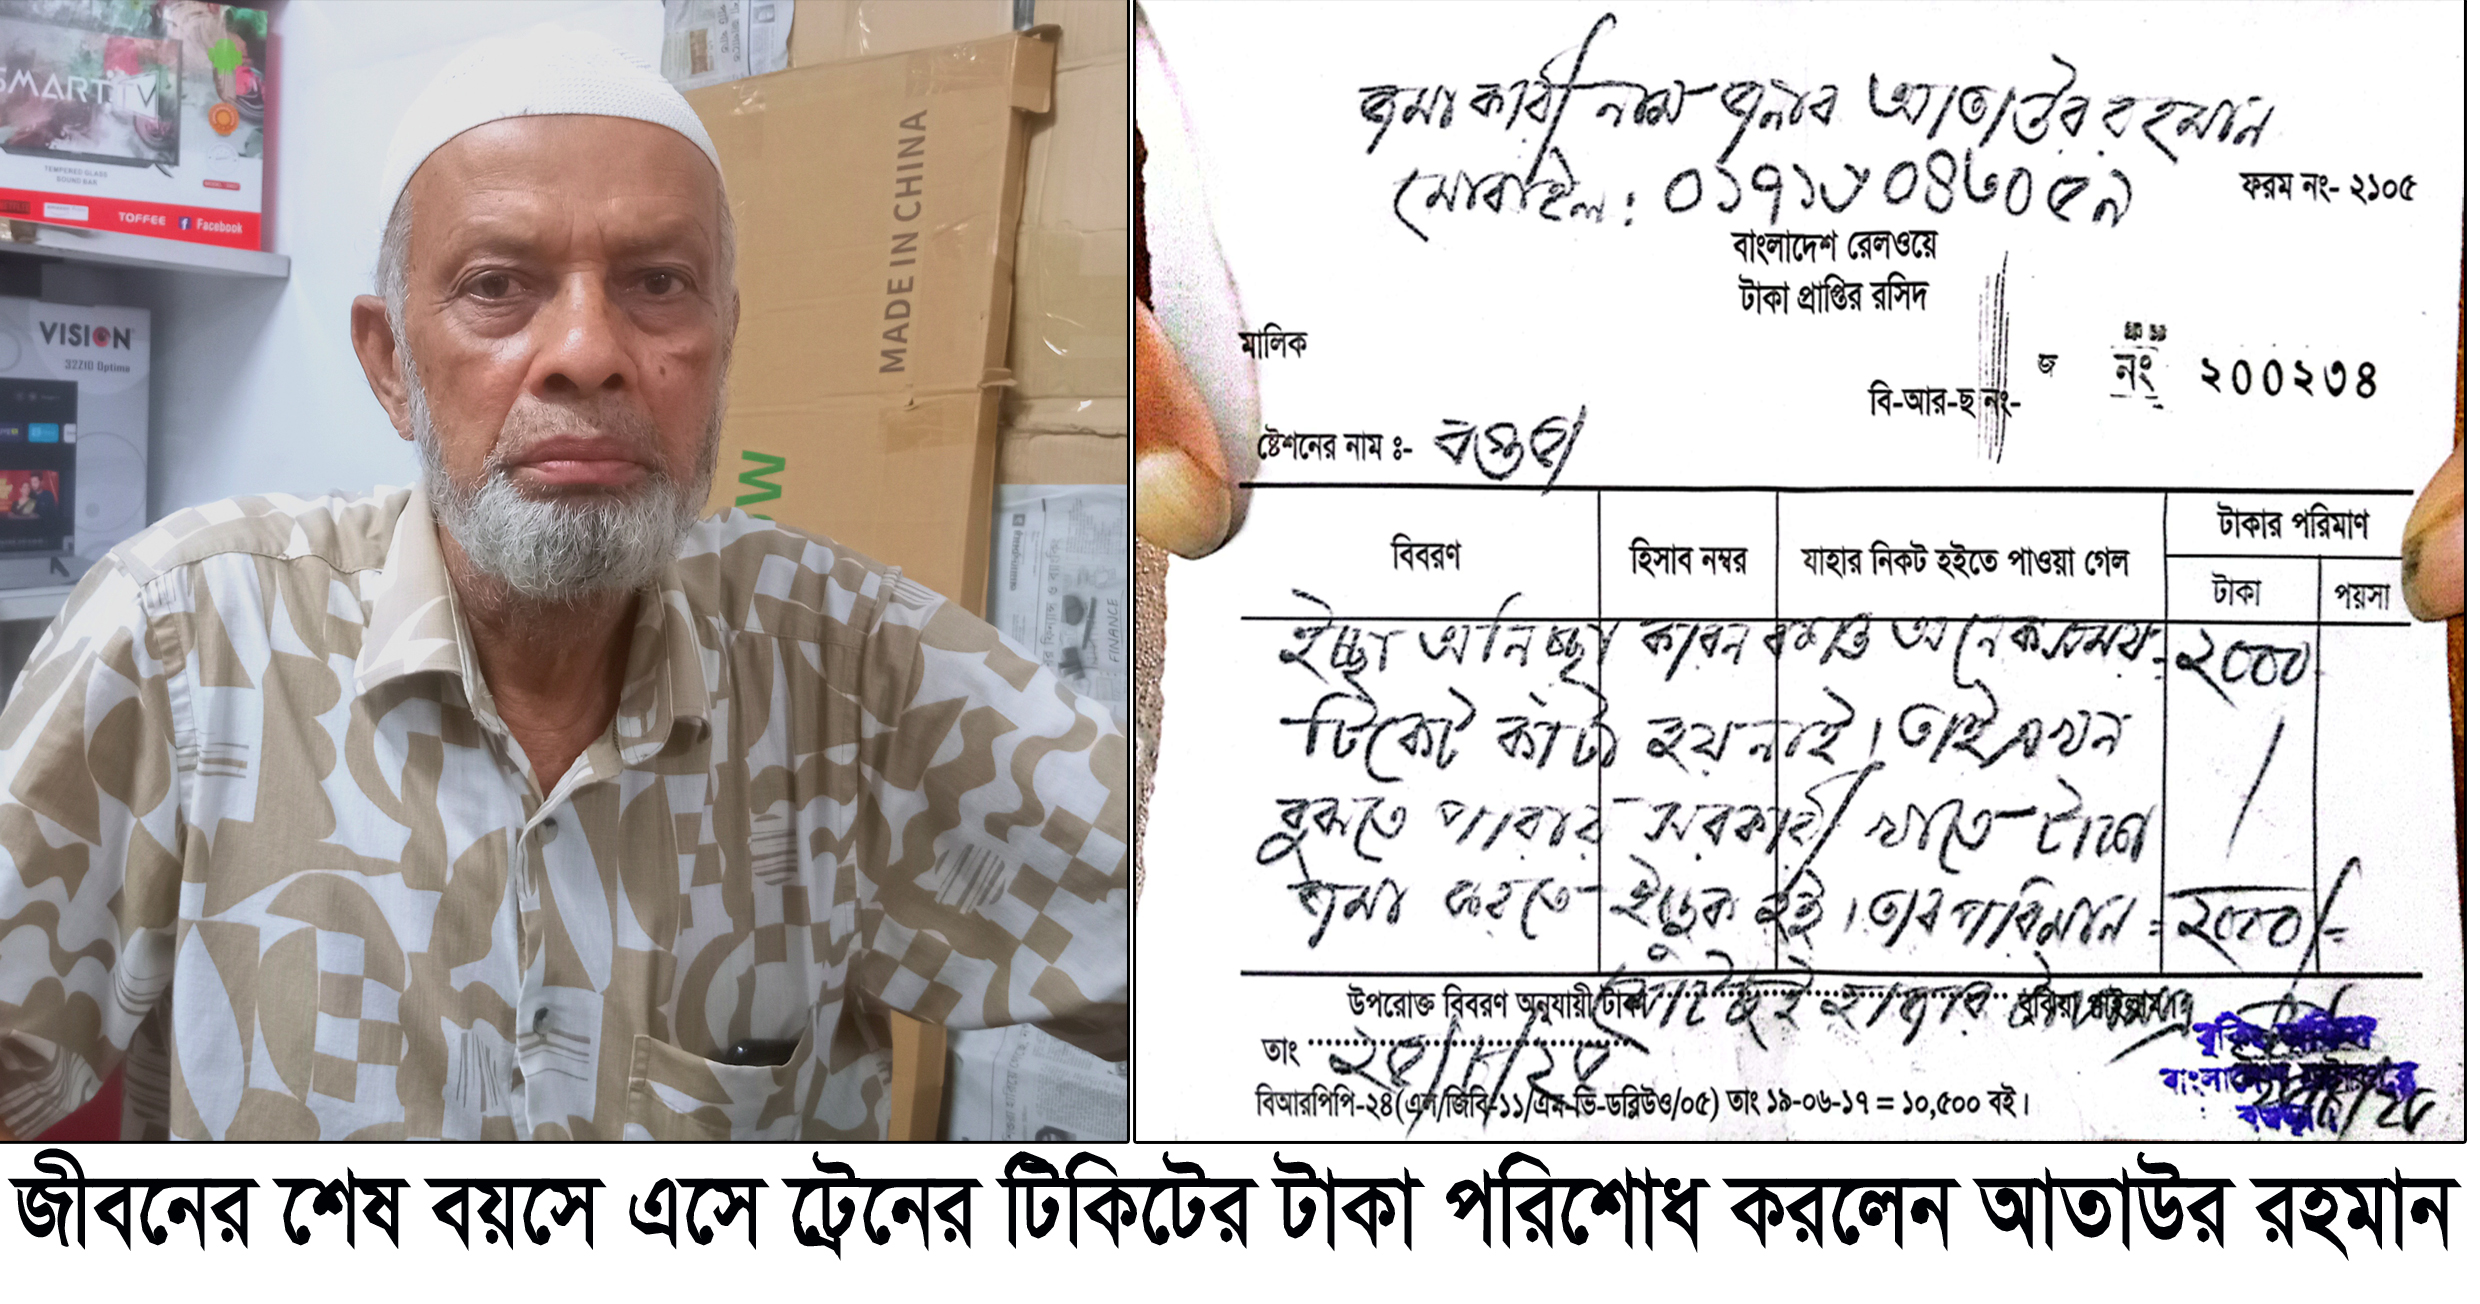 SMART TV
TEMPERED GLASS
SOUND BAR
TOFFEE Facebook
VISION
32Z10 Optima
MADE IN CHINA
FINANCE
জমা কারী নাম জনাব আতাউর রহমান
মোবাইল: ০১৭১৩০৪৬০৫৯
ফরম নং- ২১০৫
বাংলাদেশ রেলওয়ে
টাকা প্রাপ্তির রসিদ
মালিক
জ নং ২০০২৩৪
বি-আর-ছ নং-
ষ্টেশনের নাম ঃ- বগুড়া
বিবরণ হিসাব নম্বর যাহার নিকট হইতে পাওয়া গেল টাকার পরিমাণ
টাকা পয়সা
ইচ্ছা অনিচ্ছা কারন বশত অনেক সময় = ২০০০
টিকেট কাটা হয় নাই। তাই এখন
বুঝতে পারায় সরকারী খাতে টাকা
জমা করতে ইচ্ছুক হই। তার পরিমান = ২০০০/-
উপরোক্ত বিবরণ অনুযায়ী টাকা দুই হাজার বুঝিয়া পাইলাম।
তাং
বিআরপিপি-২৪(এল/জিবি-১১/এম-ভি-ডব্লিউও/০৫) তাং ১৯-০৬-১৭ = ১০,৫০০ বই।
জীবনের শেষ বয়সে এসে ট্রেনের টিকিটের টাকা পরিশোধ করলেন আতাউর রহমান